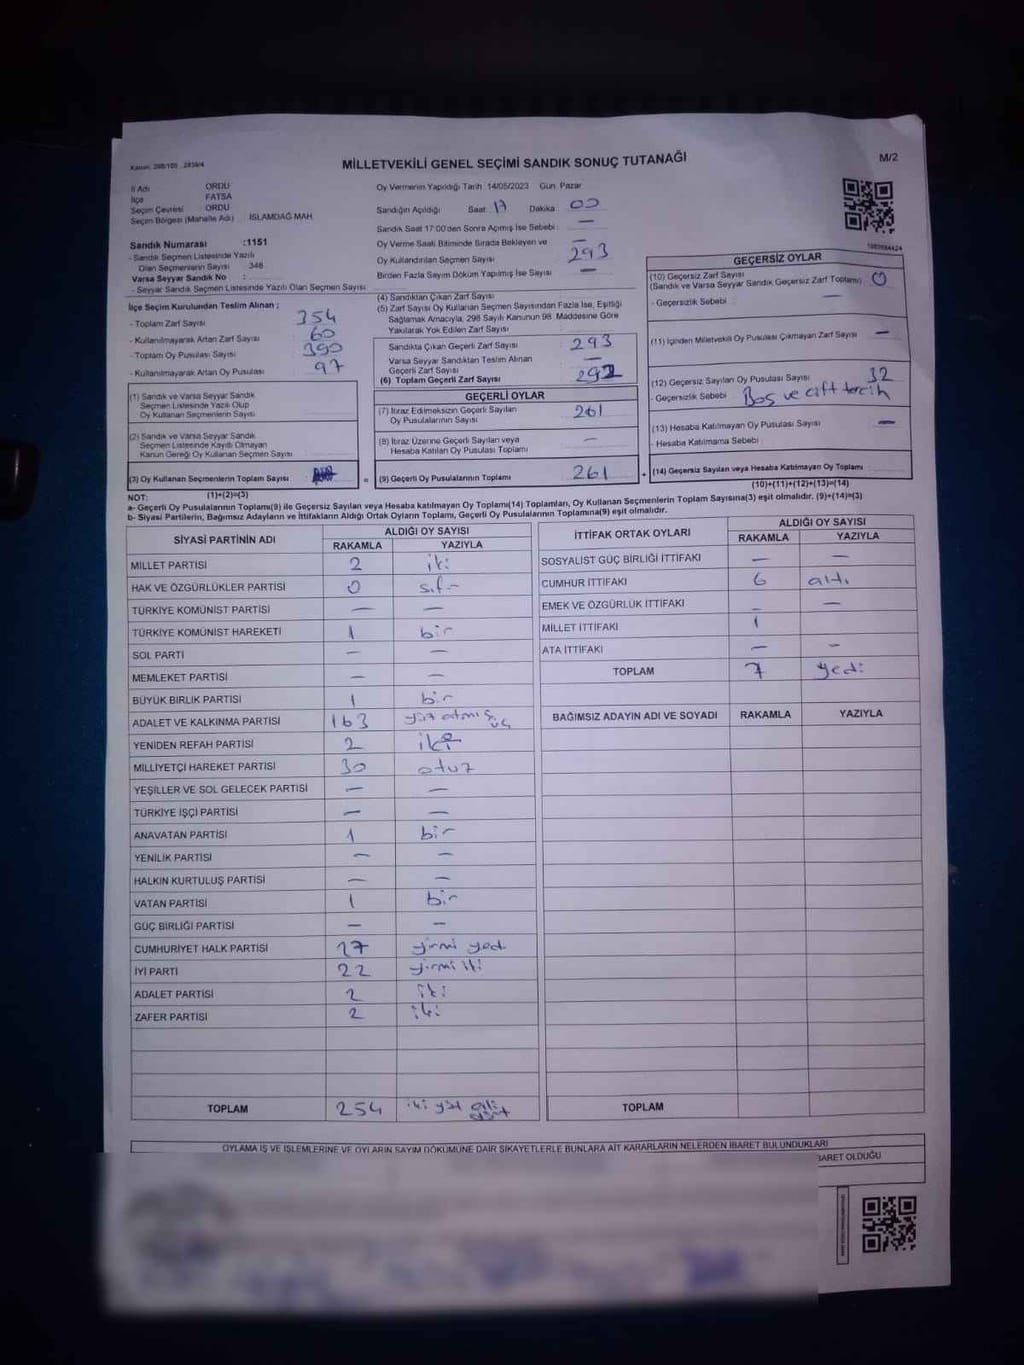 Kanun: 298/105 2839/4
MİLLETVEKİLİ GENEL SEÇİMİ SANDIK SONUÇ TUTANAĞI
M/2
İl Adı ORDU
İlçe FATSA
Seçim Çevresi ORDU
Seçim Bölgesi (Mahalle Adı) İSLAMDAĞ MAH.
Sandık Numarası :1151
- Sandık Seçmen Listesinde Yazılı
Olan Seçmenlerin Sayısı 346
Varsa Seyyar Sandık No :
- Seyyar Sandık Seçmen Listesinde Yazılı Olan Seçmen Sayısı
Oy Vermenin Yapıldığı Tarih 14/05/2023 Gün Pazar
Sandığın Açıldığı Saat 17 Dakika 00
Sandık Saat 17:00'den Sonra Açımış İse Sebebi : —
Oy Verme Saati Bitiminde Sırada Bekleyen ve —
Oy Kullandırılan Seçmen Sayısı 293
Birden Fazla Sayım Döküm Yapılmış İse Sayısı —
1983684424
İlçe Seçim Kurulundan Teslim Alınan ;
- Toplam Zarf Sayısı 354
- Kullanılmayarak Artan Zarf Sayısı 60
- Toplam Oy Pusulası Sayısı 390
- Kullanılmayarak Artan Oy Pusulası 97
(1) Sandık ve Varsa Seyyar Sandık
Seçmen Listesinde Yazılı Olup
Oy Kullanan Seçmenlerin Sayısı
(2) Sandık ve Varsa Seyyar Sandık
Seçmen Listesinde Kayıtlı Olmayan
Kanun Gereği Oy Kullanan Seçmen Sayısı
(3) Oy Kullanan Seçmenlerin Toplam Sayısı
(1)+(2)=(3)
(4) Sandıktan Çıkan Zarf Sayısı
(5) Zarf Sayısı Oy Kullanan Seçmen Sayısından Fazla İse, Eşitliği
Sağlamak Amacıyla, 298 Sayılı Kanunun 98. Maddesine Göre
Yakılarak Yok Edilen Zarf Sayısı
Sandıkta Çıkan Geçerli Zarf Sayısı 293
Varsa Seyyar Sandıktan Teslim Alınan
Geçerli Zarf Sayısı —
(6) Toplam Geçerli Zarf Sayısı
GEÇERLİ OYLAR
(7) İtiraz Edilmeksizin Geçerli Sayılan
Oy Pusulalarının Sayısı 261
(8) İtiraz Üzerine Geçerli Sayılan veya
Hesaba Katılan Oy Pusulası Toplamı —
= (9) Geçerli Oy Pusulalarının Toplamı 261
GEÇERSİZ OYLAR
(10) Geçersiz Zarf Sayısı
(Sandık ve Varsa Seyyar Sandık Geçersiz Zarf Toplamı) 0
- Geçersizlik Sebebi —
(11) İçinden Milletvekili Oy Pusulası Çıkmayan Zarf Sayısı —
(12) Geçersiz Sayılan Oy Pusulası Sayısı 32
- Geçersizlik Sebebi Boş ve çift tercih
(13) Hesaba Katılmayan Oy Pusulası Sayısı —
- Hesaba Katılmama Sebebi
+ (14) Geçersiz Sayılan veya Hesaba Katılmayan Oy Toplamı
(10)+(11)+(12)+(13)=(14)
NOT:
a- Geçerli Oy Pusulalarının Toplamı(9) ile Geçersiz Sayılan veya Hesaba Katılmayan Oy Toplamı(14) Toplamları, Oy Kullanan Seçmenlerin Toplam Sayısına(3) eşit olmalıdır. (9)+(14)=(3)
b- Siyasi Partilerin, Bağımsız Adayların ve İttifakların Aldığı Ortak Oyların Toplamı, Geçerli Oy Pusulalarının Toplamına(9) eşit olmalıdır.
SİYASİ PARTİNİN ADI ALDIĞI OY SAYISI
RAKAMLA YAZIYLA
MİLLET PARTİSİ 2 iki
HAK VE ÖZGÜRLÜKLER PARTİSİ 0 sıfır
TÜRKİYE KOMÜNİST PARTİSİ — —
TÜRKİYE KOMÜNİST HAREKETİ 1 bir
SOL PARTİ — —
MEMLEKET PARTİSİ — —
BÜYÜK BİRLİK PARTİSİ 1 bir
ADALET VE KALKINMA PARTİSİ 163 yüz atmış üç
YENİDEN REFAH PARTİSİ 2 iki
MİLLİYETÇİ HAREKET PARTİSİ 30 otuz
YEŞİLLER VE SOL GELECEK PARTİSİ — —
TÜRKİYE İŞÇİ PARTİSİ — —
ANAVATAN PARTİSİ 1 bir
YENİLİK PARTİSİ — —
HALKIN KURTULUŞ PARTİSİ — —
VATAN PARTİSİ 1 bir
GÜÇ BİRLİĞİ PARTİSİ — —
CUMHURİYET HALK PARTİSİ 27 yirmi yedi
İYİ PARTİ 22 yirmi iki
ADALET PARTİSİ 2 iki
ZAFER PARTİSİ 2 iki
TOPLAM 254 iki yüz elli dört
İTTİFAK ORTAK OYLARI ALDIĞI OY SAYISI
RAKAMLA YAZIYLA
SOSYALİST GÜÇ BİRLİĞİ İTTİFAKI — —
CUMHUR İTTİFAKI 6 altı
EMEK VE ÖZGÜRLÜK İTTİFAKI — —
MİLLET İTTİFAKI 1
ATA İTTİFAKI — —
TOPLAM 7 yedi
BAĞIMSIZ ADAYIN ADI VE SOYADI RAKAMLA YAZIYLA
TOPLAM
OYLAMA İŞ VE İŞLEMLERİNE VE OYLARIN SAYIM DÖKÜMÜNE DAİR ŞİKAYETLERLE BUNLARA AİT KARARLARIN NELERDEN İBARET BULUNDUKLARI
BARET OLDUĞU